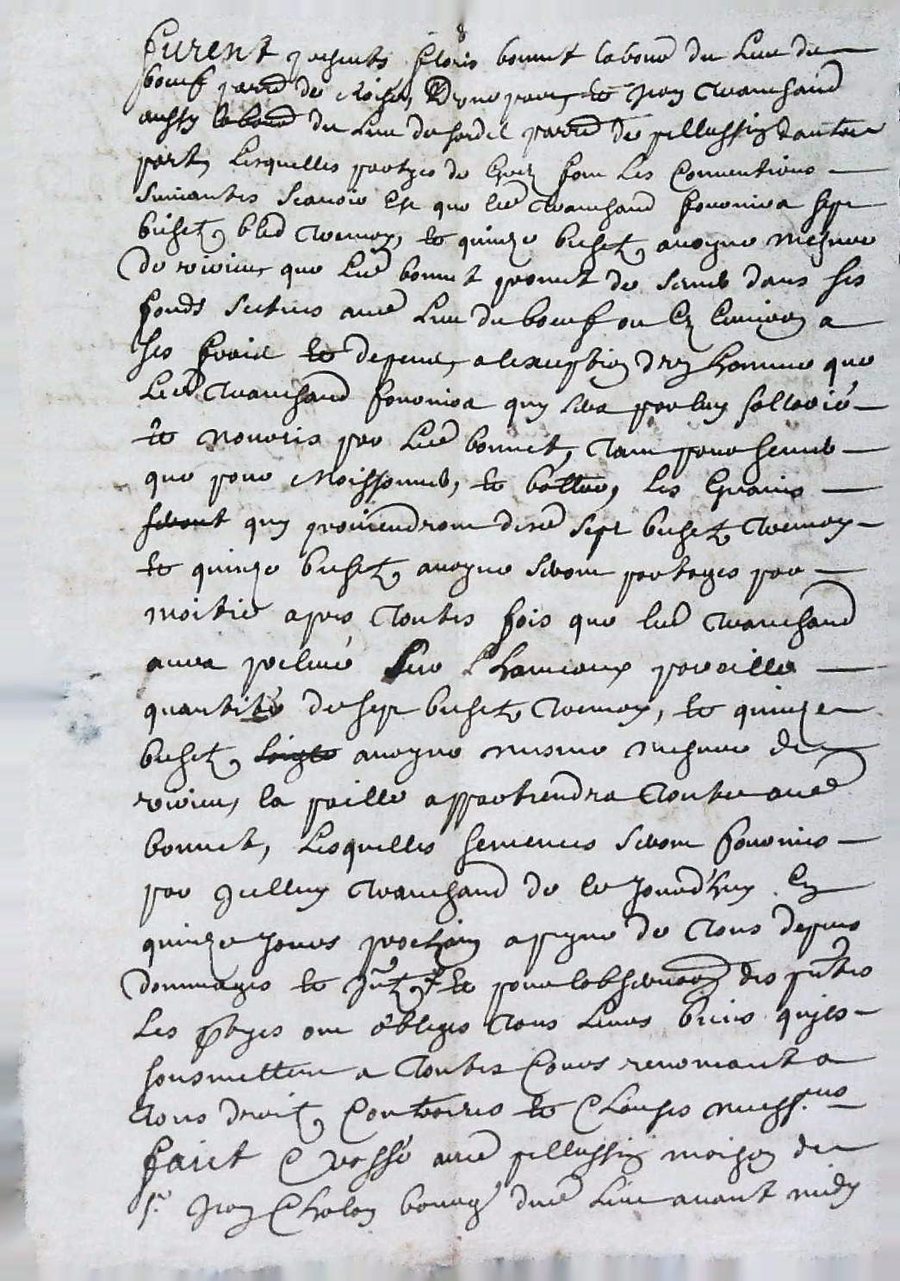 furent presents floris bonnet laboure du lieu du
boeuf parr de d'une part, et Jean marchand
aussy laboure du lieu du sordel parre de pellussin d'autre
part, lesquelles partyes de gre font les conventions
suivantes scavoir est que led marchand fournira sept
bichets bled tremoy, et quinze bichets avoyne mesure
de que led bonnet promet de semer dans ses
fonds scitues aud lieu du boeuf ou es environ a
ses fraix et depens, a lexception d'un homme que
led marchand fournira qui sera par luy sallarié
et nourris par led bonnet, tant pour semer
que pour moissonner, et battre, les grains
seront qui proviendront desd sept bichets tremoy
et quinze bichets avoyne seront partages par
moitié apres toutes fois que led marchand
aura prelevé sur l'hameaux pareille
quantité de sept bichets tremoy, et quinze
bichets avoyne mesme mesure de
la paille appartiendra toute aud
bonnet, lesquelles semences seront fournies
par icelluy marchand de ce jourd'huy en
quinze jours prochain a peyne de tous depens
dommages et intz et pour lobservaon des pntes
les ptyes ont obliges tous leurs biens qu'yles
sousmettent a toutes cours renoncant a
tous droits contraires et clauses necessres
fait et passé aud pellussin maison de
sr Jean Cholon bourgs dud lieu avant midy